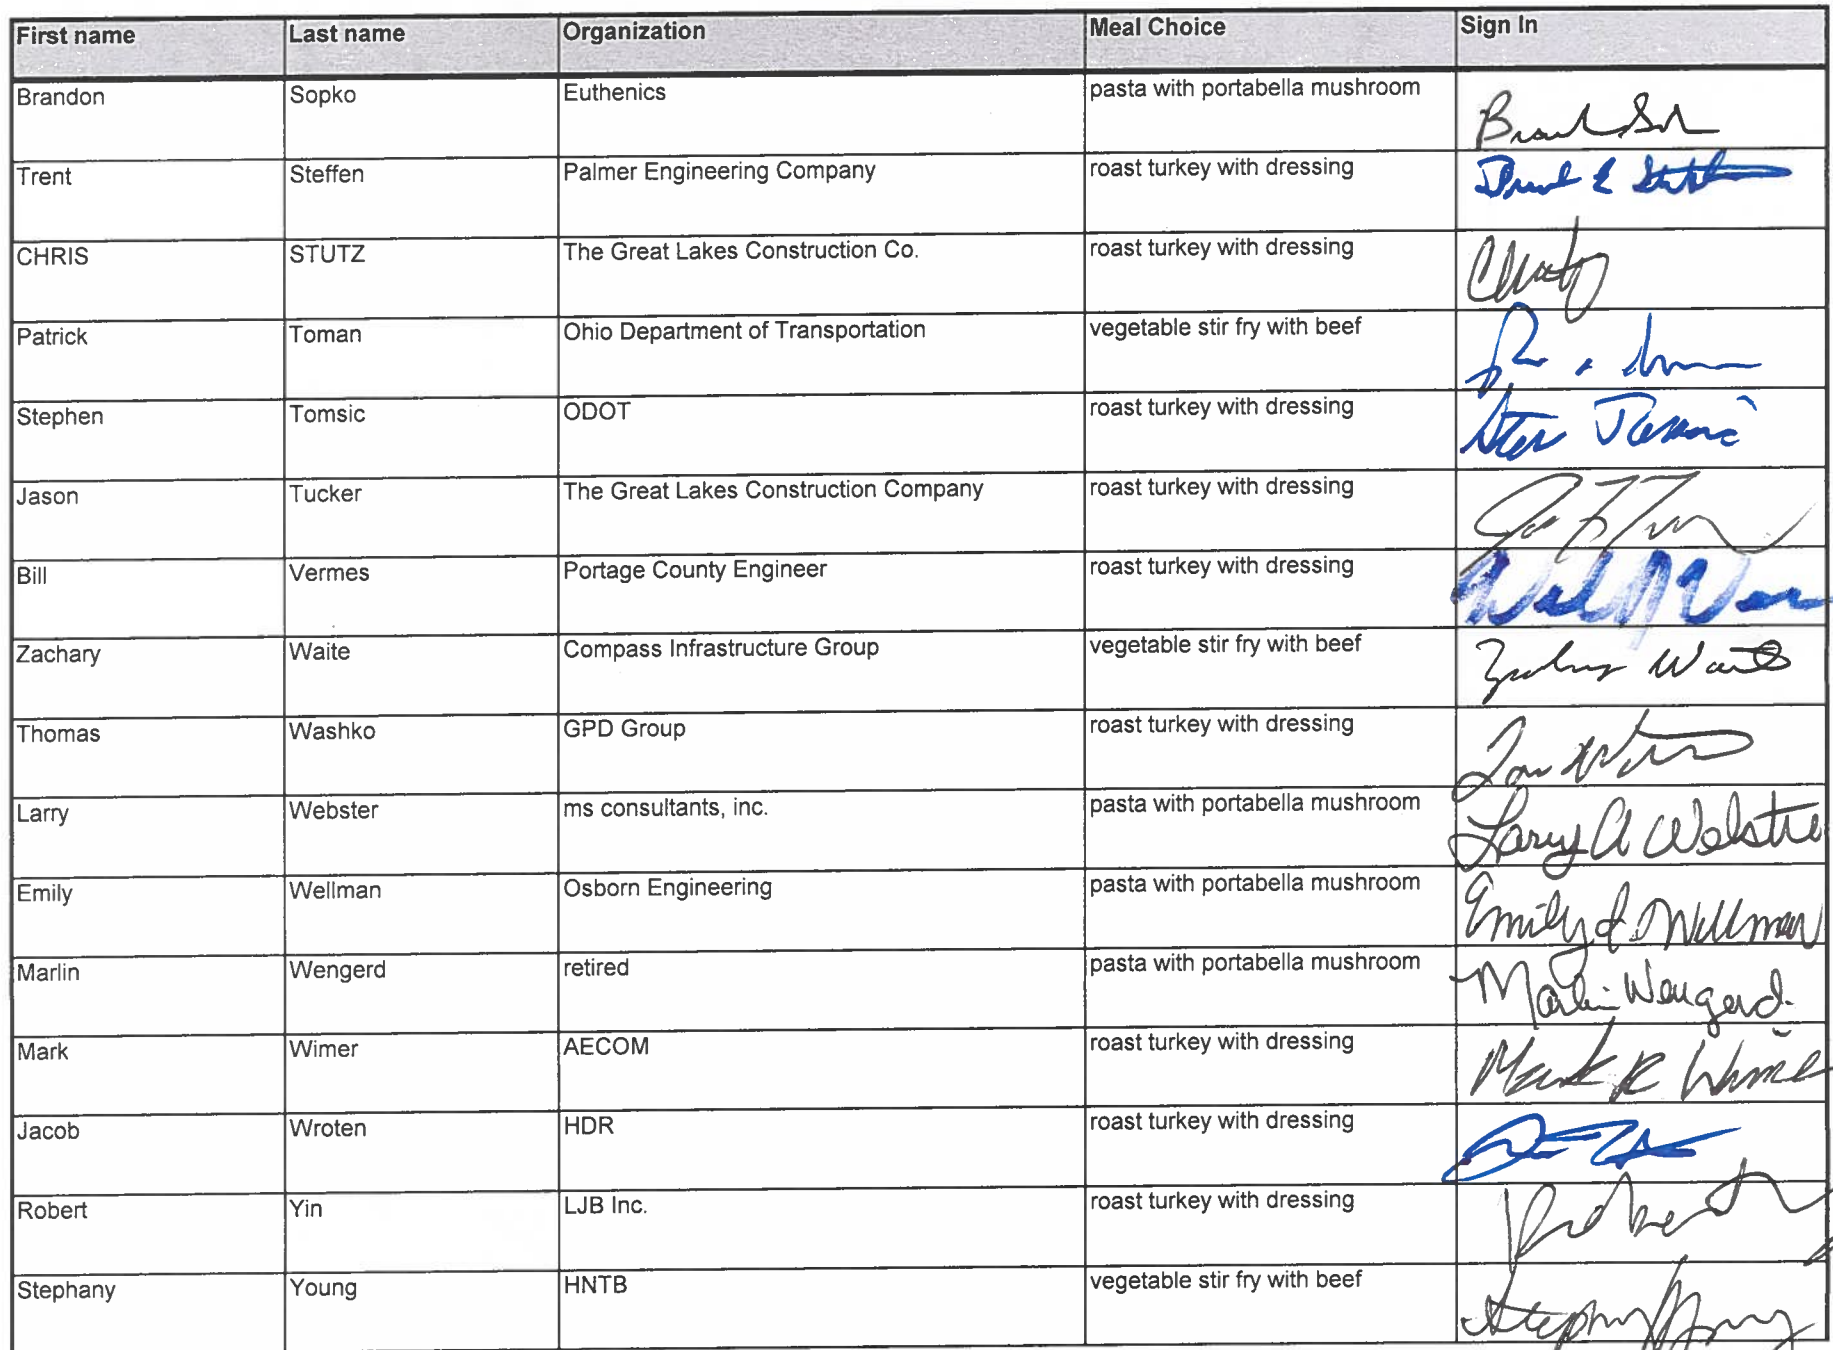 First name Last name Organization Meal Choice Sign In
Brandon Sopko Euthenics pasta with portabella mushroom
Trent Steffen Palmer Engineering Company roast turkey with dressing
CHRIS STUTZ The Great Lakes Construction Co. roast turkey with dressing
Patrick Toman Ohio Department of Transportation vegetable stir fry with beef
Stephen Tomsic ODOT roast turkey with dressing
Jason Tucker The Great Lakes Construction Company roast turkey with dressing
Bill Vermes Portage County Engineer roast turkey with dressing
Zachary Waite Compass Infrastructure Group vegetable stir fry with beef
Thomas Washko GPD Group roast turkey with dressing
Larry Webster ms consultants, inc. pasta with portabella mushroom Larry A Webster
Emily Wellman Osborn Engineering pasta with portabella mushroom Emily Wellman
Marlin Wengerd retired pasta with portabella mushroom Marlin Wengerd
Mark Wimer AECOM roast turkey with dressing Mark R Wimer
Jacob Wroten HDR roast turkey with dressing
Robert Yin LJB Inc. roast turkey with dressing Robert
Stephany Young HNTB vegetable stir fry with beef